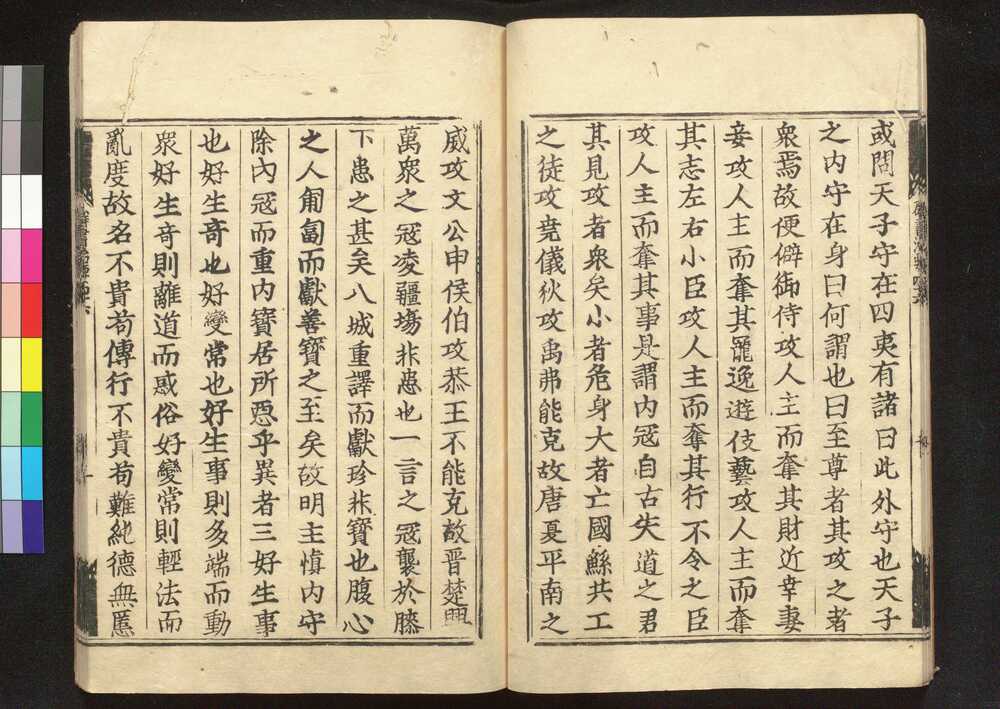 或問天子守在四夷有諸曰此外守也天子
之内守在身曰何謂也曰至尊者其攻之者
衆焉故便僻御侍攻人主而奪其財近幸妻
妾攻人主而奪其寵逸遊伎藝攻人主而奪
其志左右小臣攻人主而奪其行不令之臣
攻人主而奪其事是謂内寇自古失道之君
其見攻者衆矣小者危身大者亡國鯀共工
之徒攻堯儀狄攻禹弗能克故唐夏平南之
威攻文公申侯伯攻恭王不能克故晋楚興
萬衆之寇凌疆場非患也一言之寇襲於膝
下患之甚矣八城重譯而獻珍非寶也腹心
之人匍匐而獻善寶之至矣故明主慎内守
除内寇而重内寶居所惡乎異者三好生事
也好生奇也好變常也好生事則多端而動
衆好生奇則離道而惑俗好變常則輕法而
亂度故名不貴苟傳行不貴苟難純德無慝